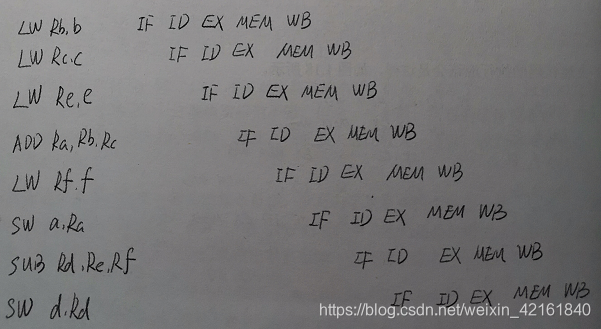 LW Rb,b IF ID EX MEM WB
LW Rc.c IF ID EX MEM WB
LW Re,e IF ID EX MEM WB
ADD Ra,Rb,Rc IF ID EX MEM WB
LW Rf.f IF ID EX MEM WB
SW a,Ra IF ID EX MEM WB
SUB Rd,Re,Rf IF ID EX MEM WB
SW d,Rd IF ID EX MEM WB
https://blog.csdn.net/weixin_42161840